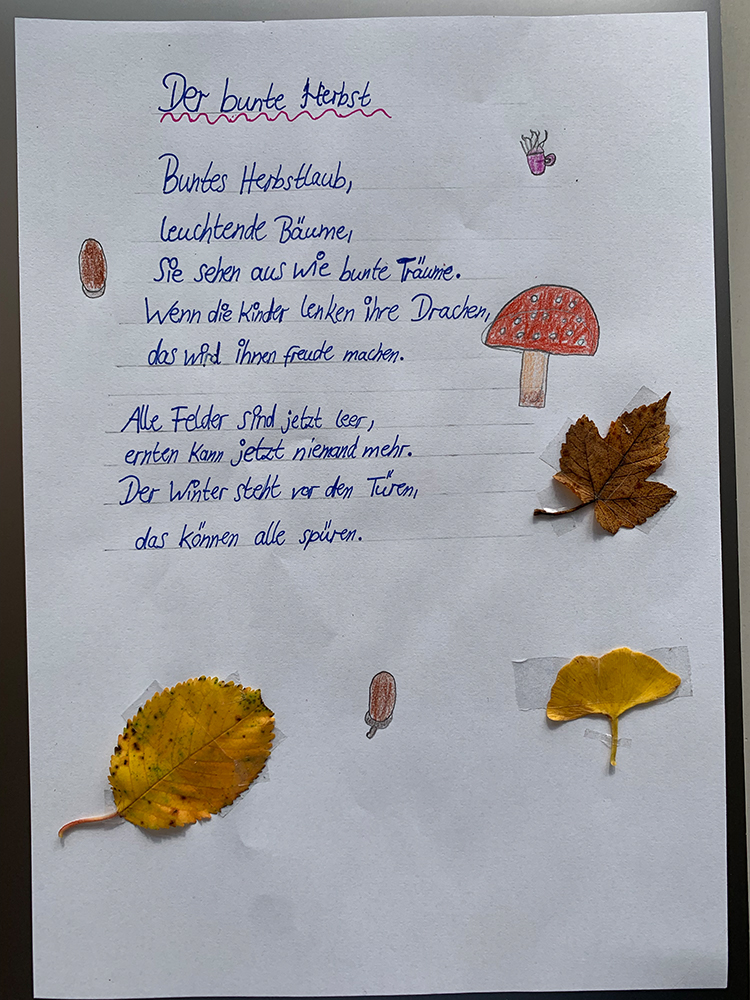 Der bunte Herbst
Buntes Herbstlaub,
leuchtende Bäume,
Sie sehen aus wie bunte Träume.
Wenn die Kinder lenken ihre Drachen,
das wird ihnen freude machen.
Alle Felder sind jetzt leer,
ernten kann jetzt niemand mehr.
Der Winter steht vor den Türen,
das können alle spüren.